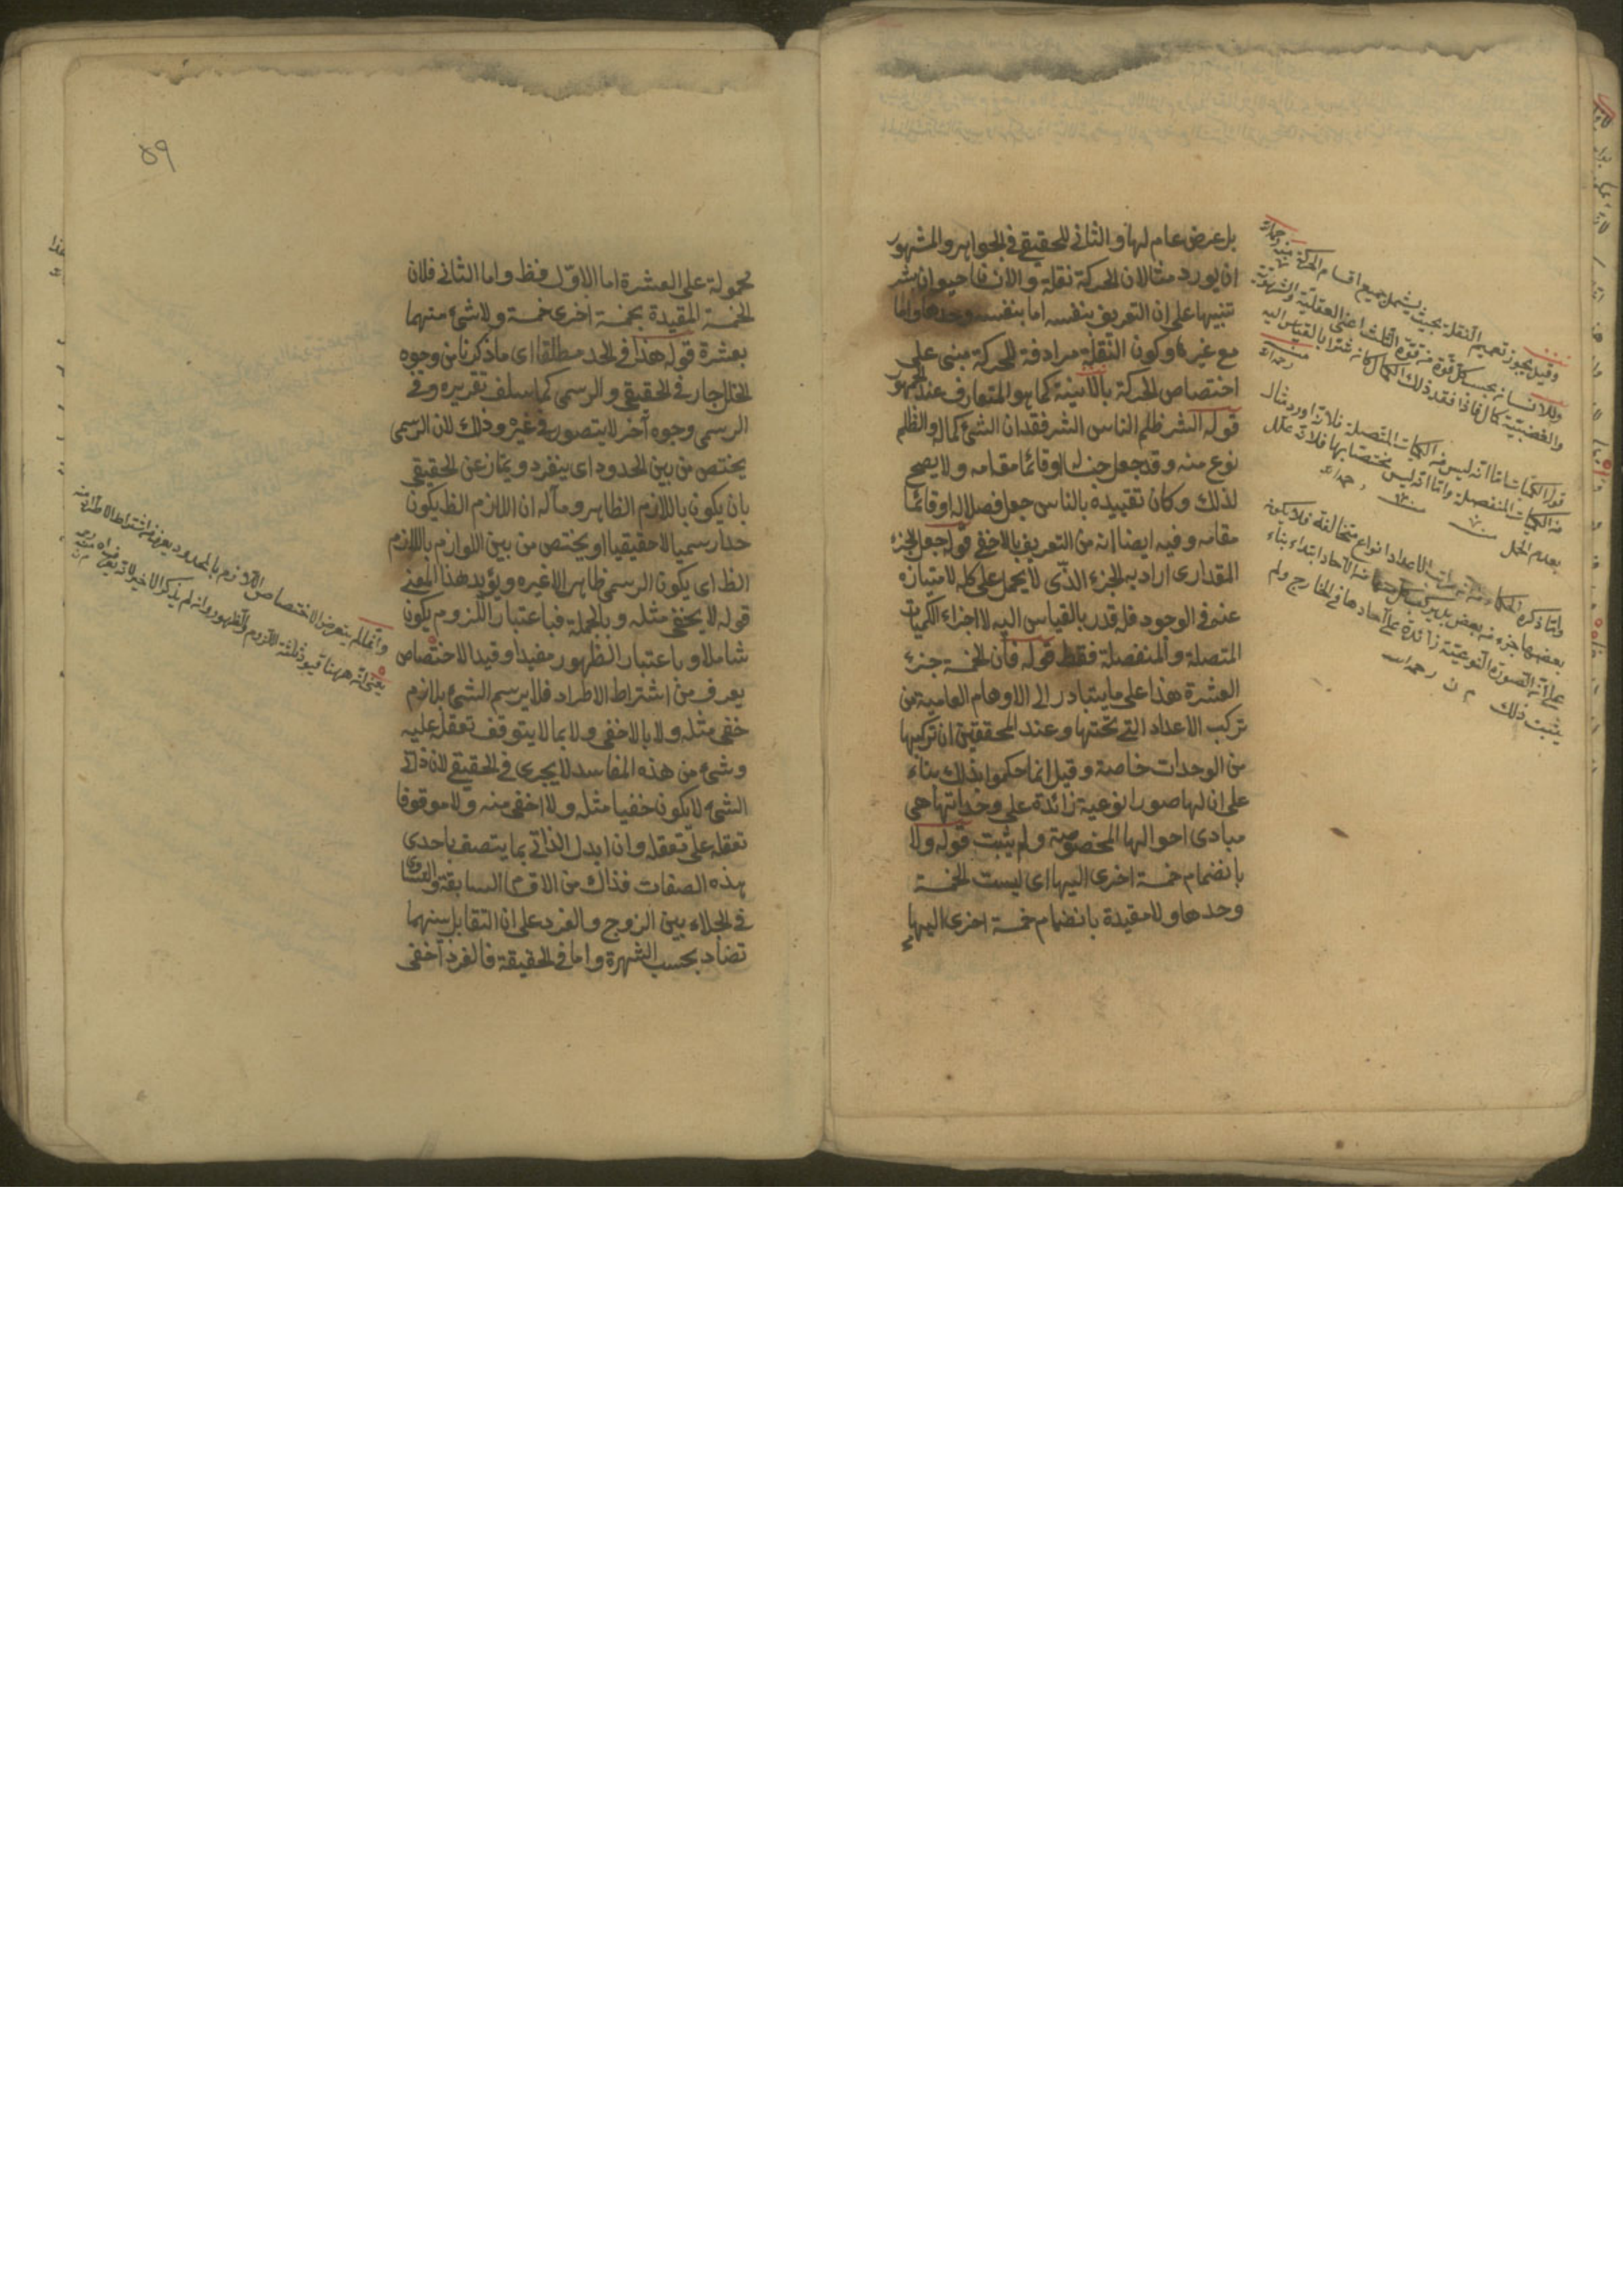 بل عرض عام لها والثانى للحقيقى فى الجواهر والمشهور
ان يورد مثالان الحركة نقلة والانسان حيوان بشر
تنبيها على ان التعريف بنفسه اما بنفسه وحدها واما
مع غيرها وكون النقلة مرادفة للحركة مبنى على
اختصاص الحركة بالاينية كما هو المتعارف عند الجمهور
قوله الشر ظلم الناس الشر فقدان الشئ كماله والظلم
نوع منه وقد جعل جنسا له او قائما مقامه ولا يصح
لذلك وكان تقييده بالناس جعل فصلا له او قائما
مقامه وفيه ايضا انه من التعريف بالاخفى قوله جعل الجزء
المقدارى اراد به الجزء الذى لا يحمل على كله لامتيازه
عنه فى الوجود فله قدر بالقياس اليه لا اجزاء الكميات
المتصلة والمنفصلة فقط قوله فان الخمسة جزء
العشرة هذا على ما يتبادر الى الاوهام العامية من
تركب الاعداد التى تحتها وعند المحققين ان تركبها
من الوحدات خاصة وقيل انما حكموا بذلك بناء
على ان لها صورا نوعية زائدة على وحداتها هى
مبادى احوالها المخصوصة ولم يثبت قوله ولا
بانضمام خمسة اخرى اليها اى ليست الخمسة
وحدها ولا مقيدة بانضمام خمسة اخرى اليها
وقيل يجوز تعميم النقلة بحيث يشمل جميع اقسام الحركة منه رحمه الله
وللانسان بحسب كل قوة من قوة الثلث اعنى العقلية والشهوية
والغضبية كمال فاذا فقد ذلك الكمال كان شرا بالقياس اليه
منه رحمه الله
قوله الكميات اما انه ليس من الكميات المتصلة فلانه اورد مثال
من الكميات المنفصلة واما انه ليس مختصا بها فلانه علل
بعدم الحمل منه رحمه الله
وانما ذكره الحكماء من ان مراتب الاعداد انواع متخالفة فلا يكون
بعضها جزء من بعض بل يركب كل منها من الآحاد ابتداء بناء
على ان الصورة النوعية زائدة على آحادها فى الخارج ولم
يثبت ذلك م ن رحمه الله
٥٩
محمولة على العشرة اما الاول فظ واما الثانى فلان
الخمسة المقيدة بخمسة اخرى خمسة ولا شئ منهما
بعشرة قوله هذا فى الحد مطلقا اى ما ذكرنا من وجوه
الخلل جار فى الحقيقى والرسمى كما سلف تقريره وفى
الرسمى وجوه آخر لا يتصور فى غيره وذلك لان الرسمى
يختص من بين الحدود اى ينفرد ويمتاز عن الحقيقى
بان يكون باللازم الظاهر ومآله ان اللازم الظ يكون
حدا رسميا لا حقيقيا او يختص من بين اللوازم باللازم
الظ اى يكون الرسمى ظاهرا لا غيره ويؤيد هذا المعنى
قوله لا يخفى مثله وبالجملة فباعتبار اللزوم يكون
شاملا وباعتبار الظهور مفيدا وقيد الاختصاص
يعرف من اشتراط الاطراد فلا يرسم الشئ بلازم
خفى مثله ولا بالاخفى ولا بما لا يتوقف تعقله عليه
وشئ من هذه المفاسد لا يجرى فى الحقيقى لان ذاتى
الشئ لا يكون خفيا مثله ولا اخفى منه ولا موقوفا
تعقله على تعقله وان ابدل الذاتى بما يتصف باحدى
هذه الصفات فذاك من الاقسام السابقة والتساوى
فى الجلاء بين الزوج والفرد على ان التقابل بينهما
تضاد بحسب الشهرة واما فى الحقيقة فالفرد اخفى
وانما لم يتعرض لاختصاص اللازم بالمحدود يعرف من اشتراط الاطراد منه
يعنى ان ههنا قيود ثلثة اللزوم والظهور وانه لم يذكر الاخير لانه يعرف